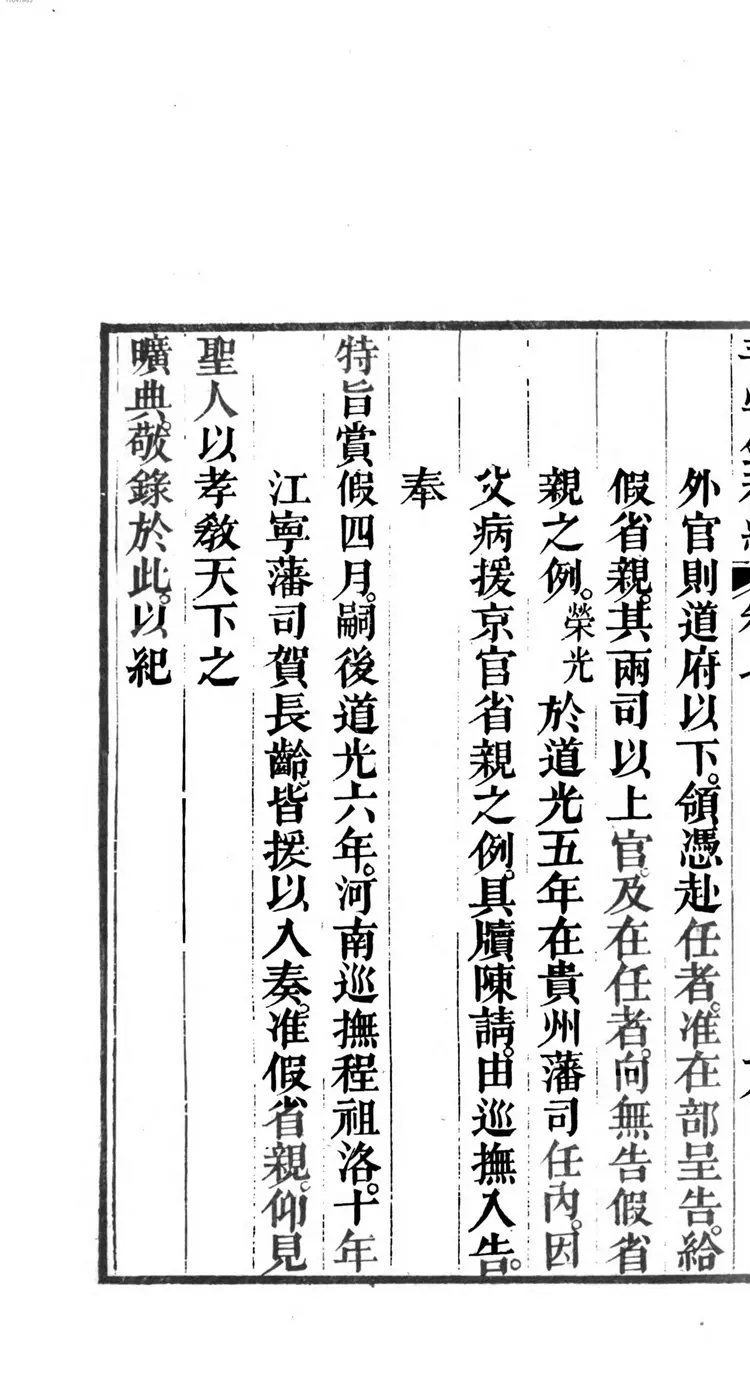 外官則道府以下。領憑赴任者。准在部呈告。給
假省親。其兩司以上官。及在任者。向無告假省
親之例。榮光於道光五年在貴州藩司任內。因
父病援京官省親之例。具牘陳請。由巡撫入告。
奉
特旨賞假四月。嗣後道光六年。河南巡撫程祖洛。十年
江寧藩司賀長齡。皆援以入奏。准假省親。仰見
聖人以孝敎天下之
曠典。敬錄於此。以紀